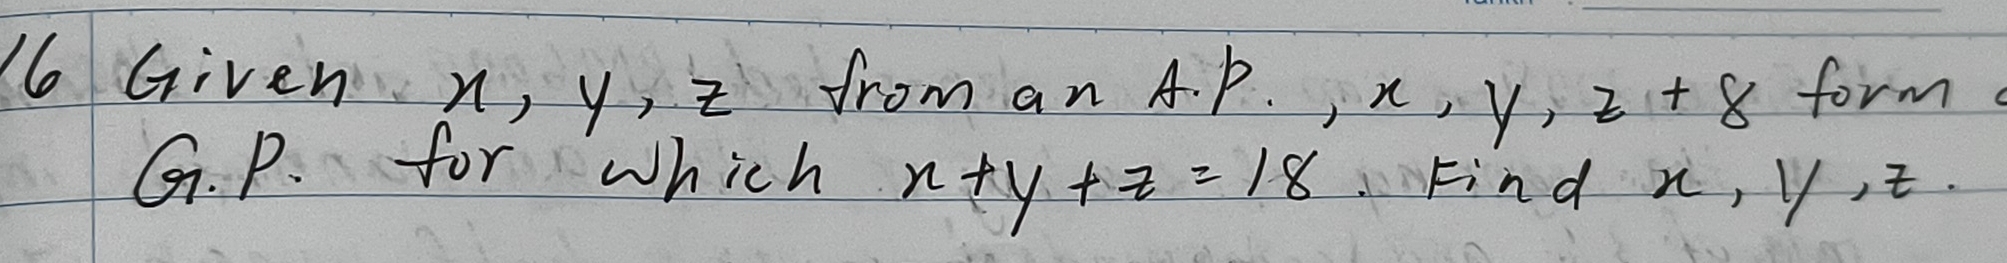 16 Given x, y, z from an A.P., x, y, z + 8 form
G.P. for which x + y + z = 18. Find x, y, z.